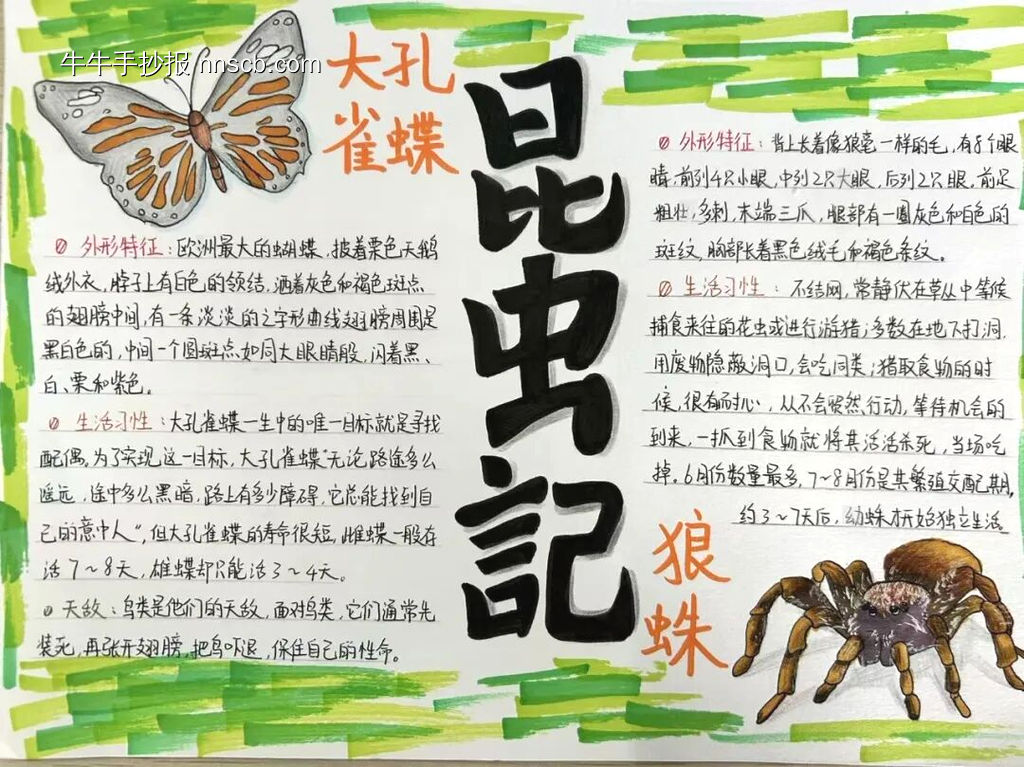 牛牛手抄报 / nnscb.com
大孔
雀蝶
外形特征：欧洲最大的蝴蝶，披着栗色天鹅
绒外衣，脖子上有白色的领结，洒着灰色和褐色斑点
的翅膀中间，有一条淡淡的之字形曲线翅膀周围是
黑白色的，中间一个圆斑点如同大眼睛般，闪着黑、
白、栗和紫色。
生活习性：大孔雀蝶一生中的唯一目标就是寻找
配偶，为了实现这一目标，大孔雀蝶“无论路途多么
遥远，途中多么黑暗，路上有多少障碍，它总能找到自
己的意中人”，但大孔雀蝶的寿命很短，雌蝶一般存
活7~8天，雄蝶却只能活3~4天。
天敌：鸟类是他们的天敌，面对鸟类，它们通常先
装死，再张开翅膀，把鸟吓退，保住自己的性命。
昆虫記
外形特征：背上长着像狼毫一样的毛，有8个眼
睛，前列4只小眼，中列2只大眼，后列2只眼。前足
粗壮，多刺，末端三爪，腿部有一圈灰色和白色的
斑纹，胸部长着黑色绒毛和褐色条纹。
生活习性：不结网，常静伏在草丛中等候
捕食来往的花虫或进行游猎；多数在地下打洞，
用废物隐蔽洞口，会吃同类；猎取食物的时
候，很有耐心，从不会贸然行动，等待机会的
到来，一抓到食物就将其活活杀死，当场吃
掉。6月份数量最多，7~8月份是其繁殖交配期，
约3~7天后，幼蛛才开始独立生活
狼
蛛